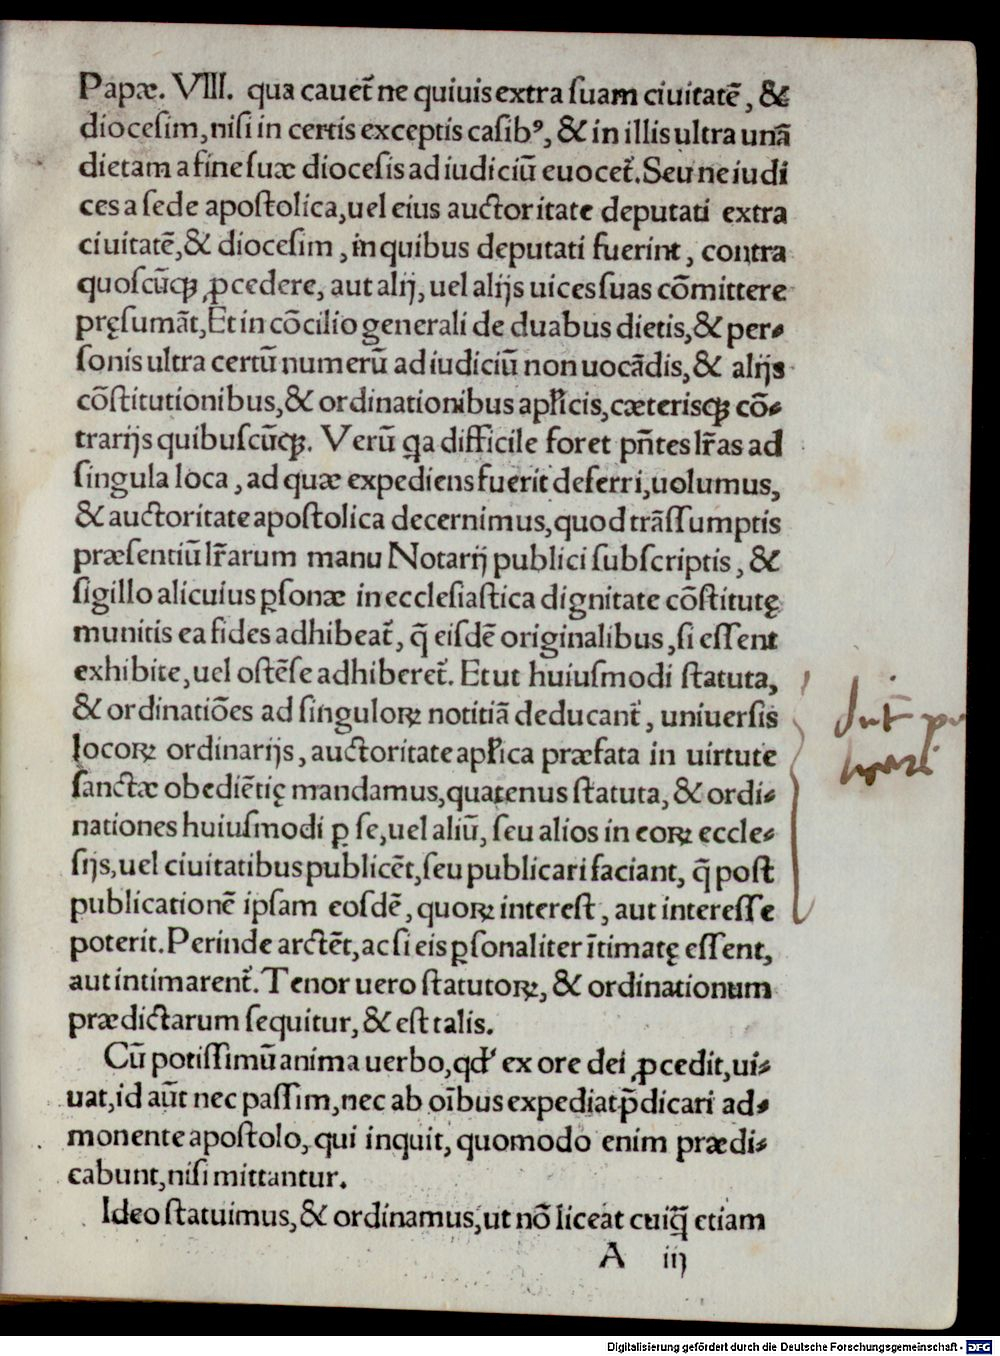 Papæ. VIII. qua cauet᷑ ne quiuis extra ſuam ciuitatē, &
dioceſim, niſi in certis exceptis caſibꝰ, & in illis ultra unā
dietam a fine ſuæ dioceſis ad iudiciū euocet᷑. Seu ne iudi
ces a ſede apoſtolica, uel eius auctoritate deputati extra
ciuitatē, & dioceſim, in quibus deputati fuerint, contra
quoſcūqꝫ ꝓcedere, aut alij, uel alijs uices ſuas cōmittere
pręſumāt, Et in cōcilio generali de duabus dietis, & per⸗
ſonis ultra certū numerū ad iudiciū non uocādis, & alijs
cōſtitutionibus, & ordinationibus apl̄icis, cæterisqꝫ cō⸗
trarijs quibuſcūqꝫ. Verū qa difficile foret pn̄tes lr̄as ad
ſingula loca, ad quæ expediens fuerit deferri, uolumus,
& auctoritate apoſtolica decernimus, quod trāſſumptis
præſentiū lr̄arum manu Notarij publici ſubſcriptis, &
ſigillo alicuius ꝑſonæ in eccleſiaſtica dignitate cōſtitutę
munitis ea fides adhibeat᷑, q̄ eiſdē originalibus, ſi eſſent
exhibite, uel oſtēſe adhiberet᷑. Et ut huiuſmodi ſtatuta,
& ordinatiōes ad ſinguloꝝ notitiā deducant᷑, uniuerſis
locoꝝ ordinarijs, auctoritate apl̄ica præfata in uirtute
ſanctæ obediētię mandamus, quatenus ſtatuta, & ordi⸗
nationes huiuſmodi ꝑ ſe, uel aliū, ſeu alios in eoꝝ eccle⸗
ſijs, uel ciuitatibus publicēt, ſeu publicari faciant, q̄ poſt
publicationē ipſam eoſdē, quoꝝ intereſt, aut intereſſe
poterit. Perinde arctēt, ac ſi eis ꝑſonaliter ītimatę eſſent,
aut intimarent᷑. Tenor uero ſtatutoꝝ, & ordinationum
prædictarum ſequitur, & eſt talis.
Cū potiſſimū anima uerbo, qd' ex ore dei ꝓcedit, ui⸗
uat, id aūt nec paſſim, nec ab oībus expediat p̄dicari ad⸗
monente apoſtolo, qui inquit, quomodo enim prædi⸗
cabunt, niſi mittantur.
Ideo ſtatuimus, & ordinamus, ut nō liceat cuiq̄ etiam
A iij
Digitalisierung gefördert durch die Deutsche Forschungsgemeinschaft - DFG